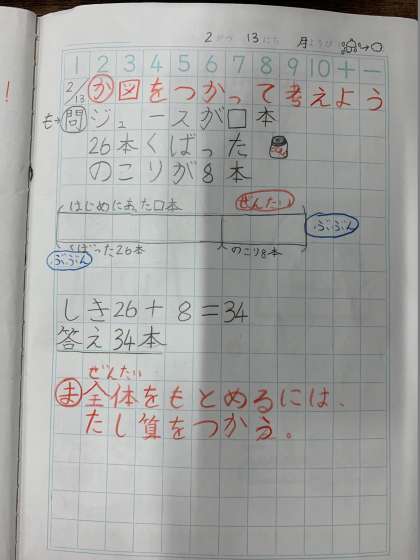 2がつ 13にち 月ようび
1 2 3 4 5 6 7 8 9 10 + −
2/13 か 図をつかって考えよう
も→問 ジュースが□本
26本くばった
のこりが8本
はじめにあった□本 ぜんたい
ぶぶん
くばった26本 のこり8本
ぶぶん
しき26+8=34
答え34本
ぜんたい
ま 全体をもとめるには、
たし算をつかう。
!